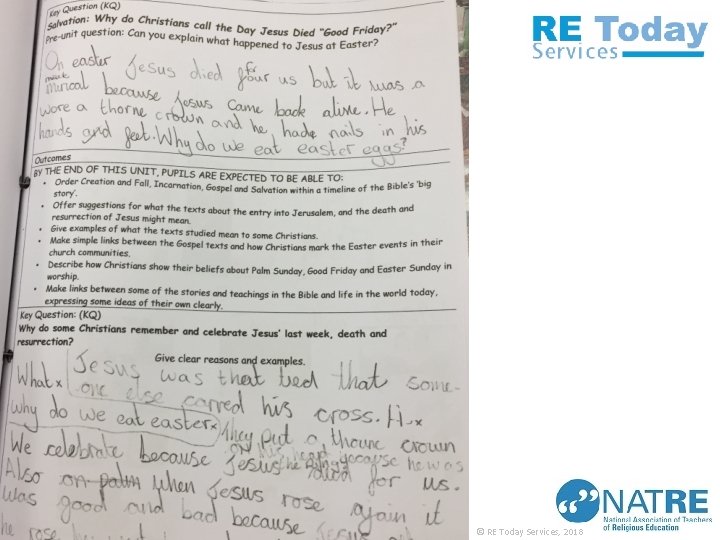 Key Question (KQ)
Salvation: Why do Christians call the Day Jesus Died "Good Friday?"
Pre-unit question: Can you explain what happened to Jesus at Easter?
On easter Jesus died for our us but it was a
mirical because Jesus came back alive. He
wore a thorne crown and he hade nails in his
hands and feet. Why do we eat easter eggs?
Outcomes
BY THE END OF THIS UNIT, PUPILS ARE EXPECTED TO BE ABLE TO:
• Order Creation and Fall, Incarnation, Gospel and Salvation within a timeline of the Bible's 'big
story'.
• Offer suggestions for what the texts about the entry into Jerusalem, and the death and
resurrection of Jesus might mean.
• Give examples of what the texts studied mean to some Christians.
• Make simple links between the Gospel texts and how Christians mark the Easter events in their
church communities.
• Describe how Christians show their beliefs about Palm Sunday, Good Friday and Easter Sunday in
worship.
• Make links between some of the stories and teachings in the Bible and life in the world today,
expressing some ideas of their own clearly.
Key Question: (KQ)
Why do some Christians remember and celebrate Jesus' last week, death and
resurrection?
Give clear reasons and examples.
What x Jesus was that tied that some-
one else carred his cross.
why do we eat easter x They put a thorne crown
on his head because he was
We celebrate because Jesus died for us.
Also on palm when Jesus rose again it
was good and bad because Jesus
he rose
RE Today
Services
NATRE
National Association of Teachers
of Religious Education
© RE Today Services, 2018